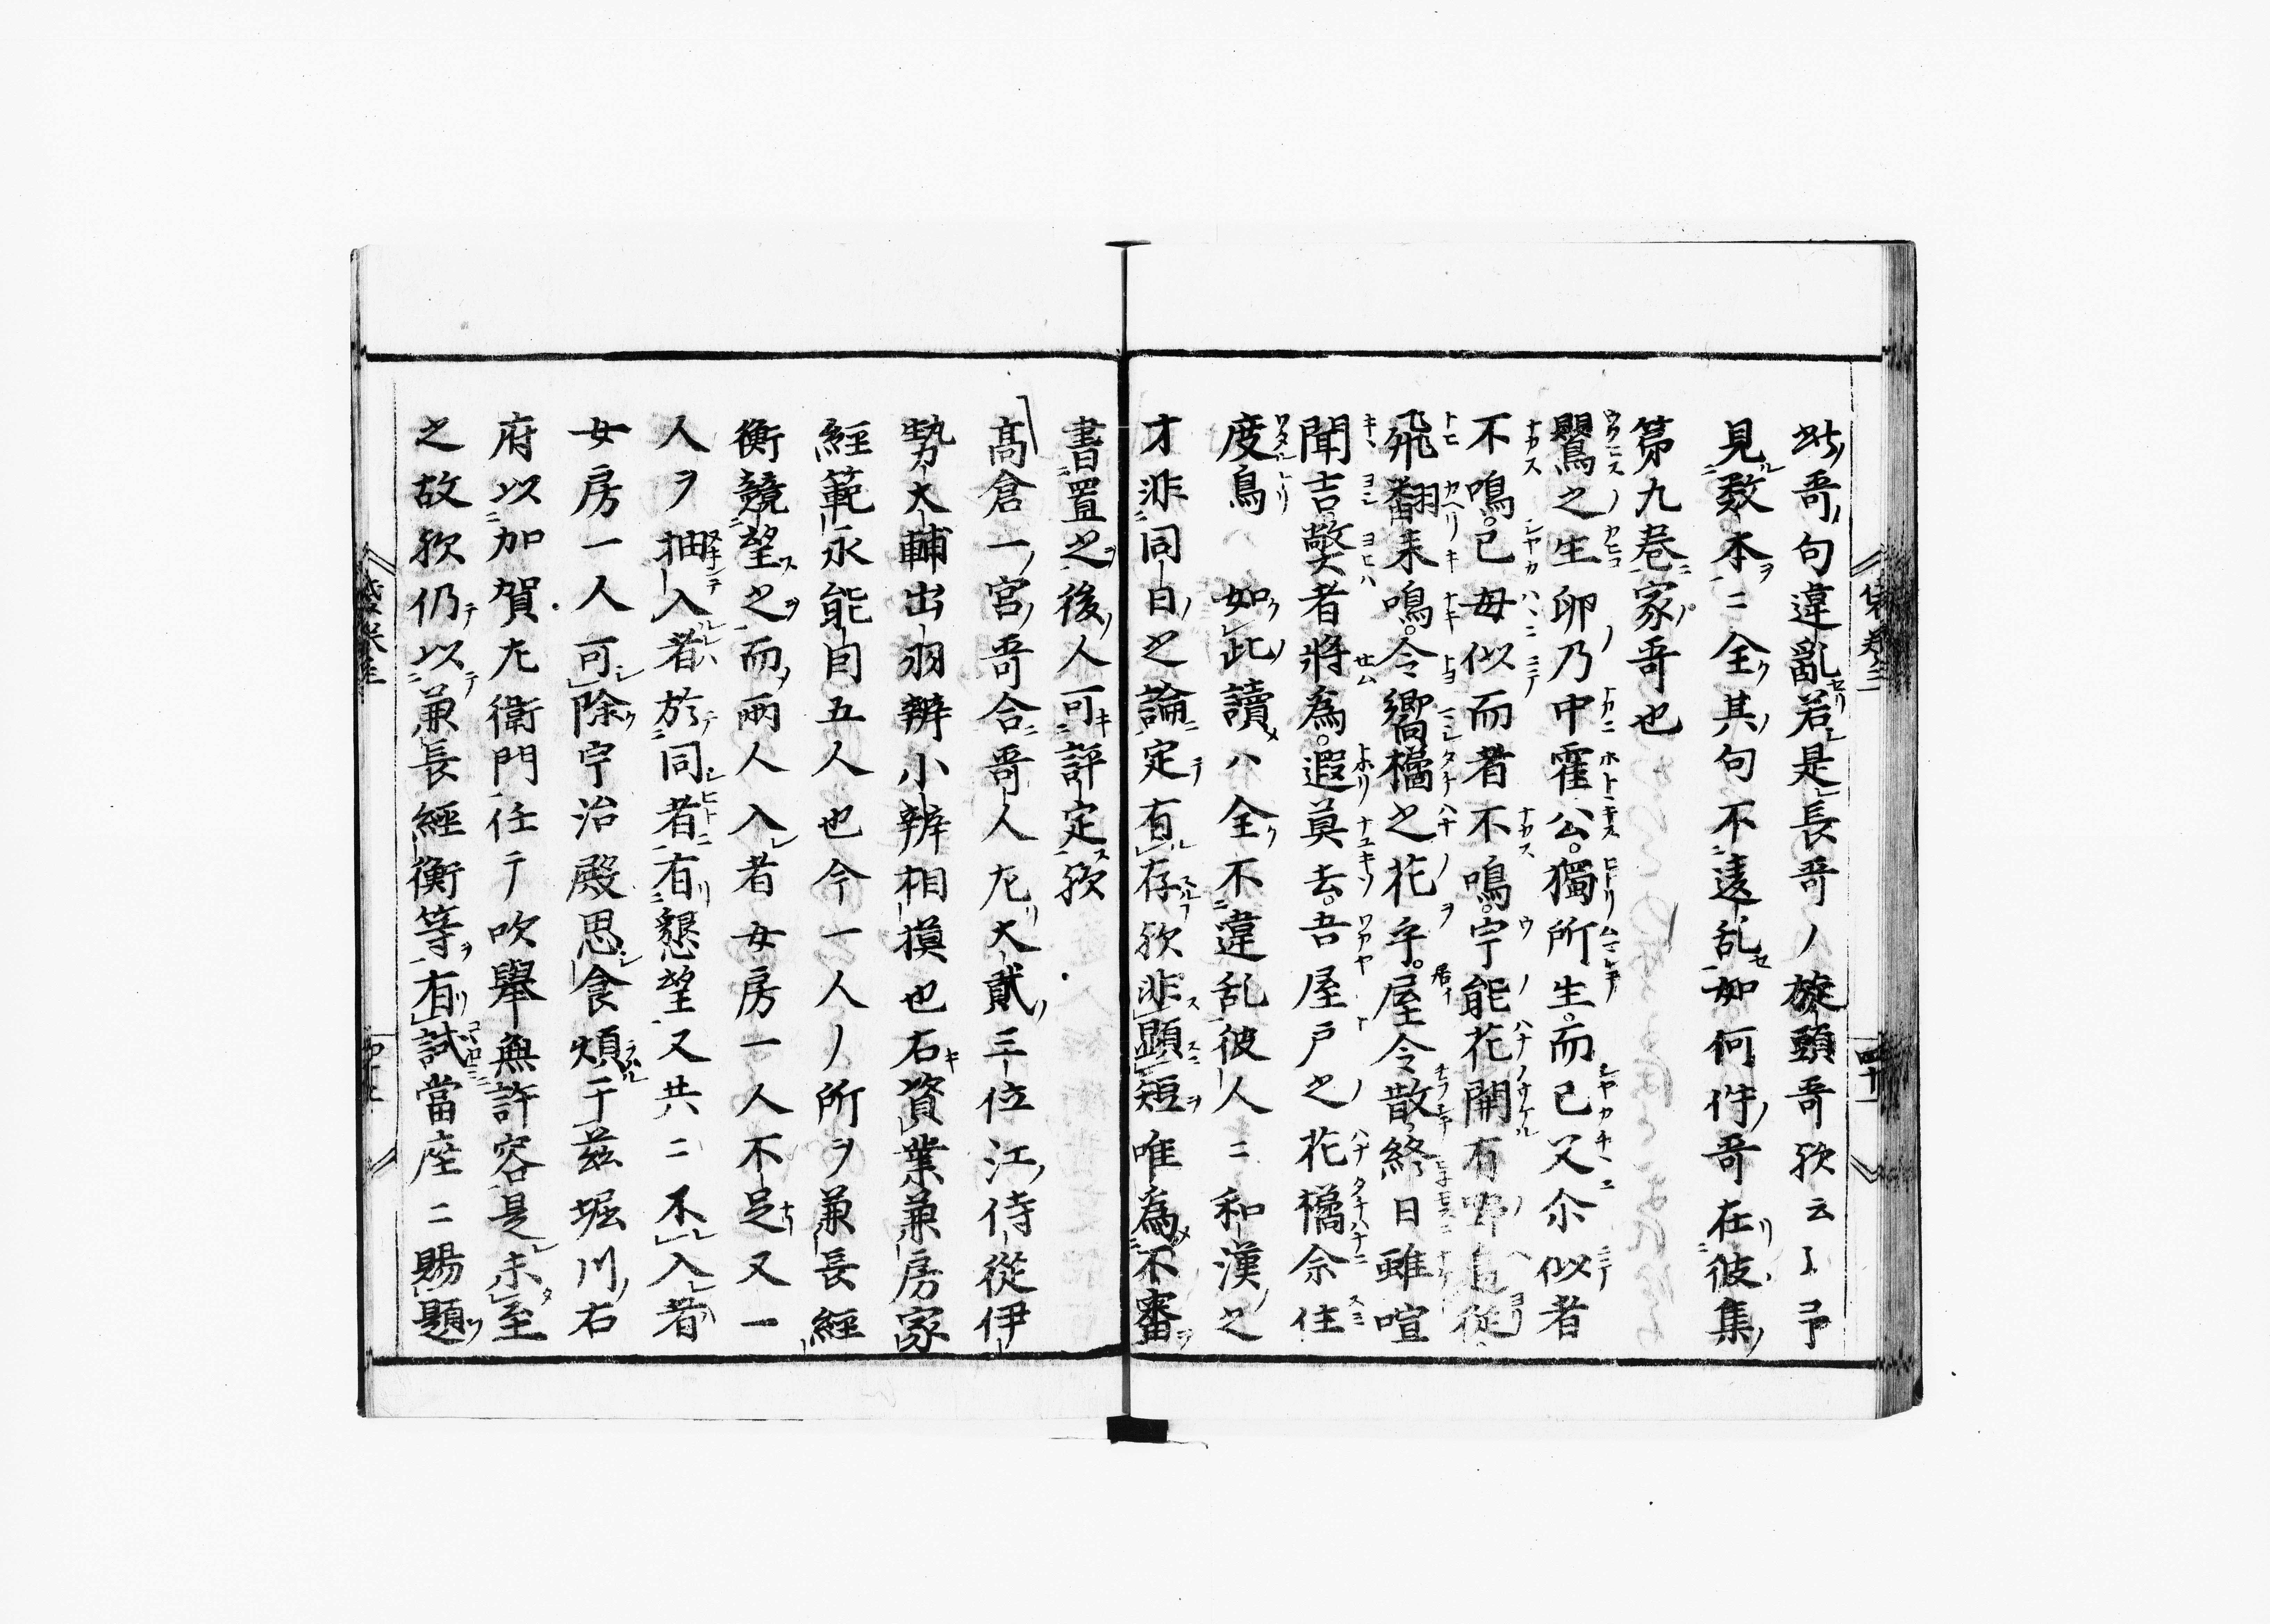 此哥句違亂若是長哥ノ旋頭哥歟云々予
見数本ニ全其句不違乱如何件哥在彼集
第九巻家哥也
鸎之生卵乃中霍公獨所生而已父尒似者
不鳴已母似而者不鳴宇能花開有野邊従
飛翻来鳴令響橘之花乎屋令散終日雖喧
聞吉弊者將為遐莫去吾屋戸之花橘尒住
度鳥 如此讀ハ全不違乱彼人ニ和漢之
才非同日之論定有存歟非顕短唯為不審
書置之後人可評定歟
髙倉一宮哥合哥人左大貳三位江侍從伊
勢大輔出羽辨小辨相摸也右資業兼房家
經範永能自五人也今一人ノ所ヲ兼長經
衡競望之而兩人入者女房一人不足又一
人ヲ抽入者於同者有懇望又共ニ不入者
女房一人可除宇治殿思食煩于兹堀川右
府以加賀左衛門任テ吹舉無許容是未至
之故歟仍以兼長經衡等有試當座ニ賜題